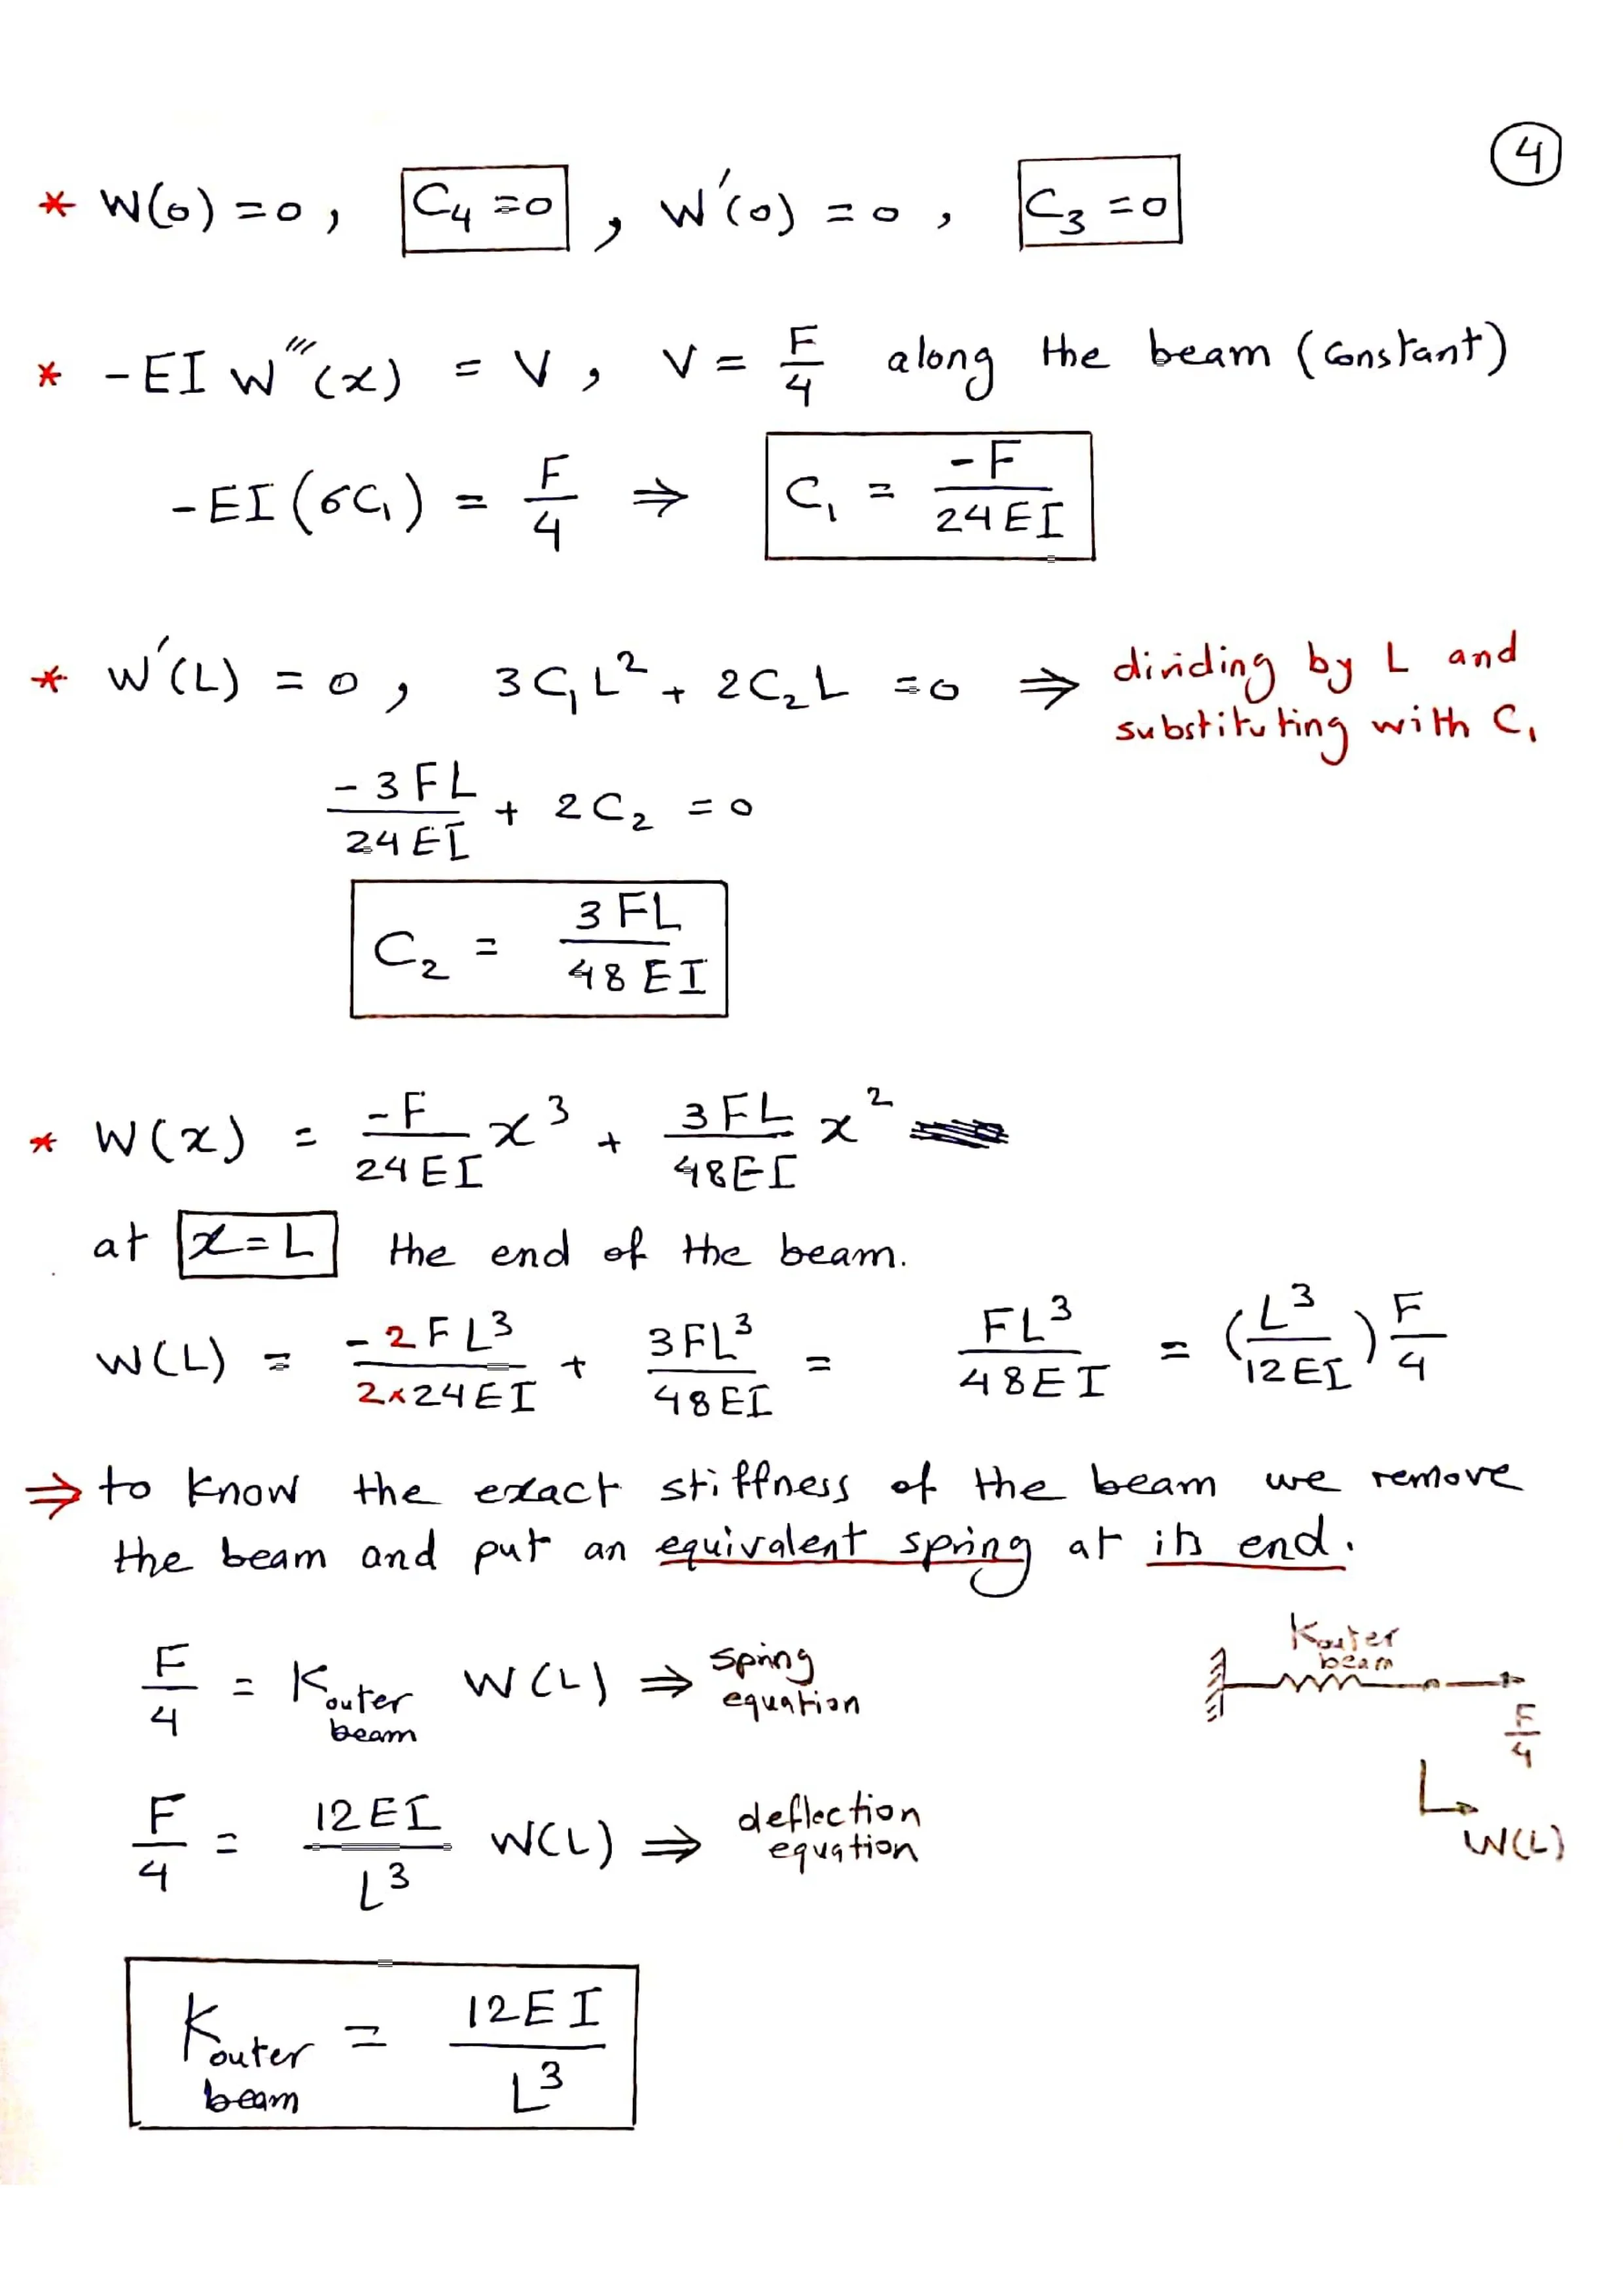 4
* W(0) = 0 , C₄ = 0 , W'(0) = 0 , C₃ = 0
* -EI W'''(x) = V , V = F/4 along the beam (constant)
-EI(6C₁) = F/4 ⇒ C₁ = -F/24EI
* W'(L) = 0 , 3C₁L² + 2C₂L = 0 ⇒ dividing by L and
substituting with C₁
-3FL/24EI + 2C₂ = 0
C₂ = 3FL/48EI
* W(x) = -F/24EI x³ + 3FL/48EI x²
at x = L the end of the beam.
W(L) = -2FL³/2×24EI + 3FL³/48EI = FL³/48EI = (L³/12EI) F/4
⇒ to know the exact stiffness of the beam we remove
the beam and put an equivalent spring at its end.
F/4 = K outer beam W(L) ⇒ spring equation
K outer beam
F/4
W(L)
F/4 = 12EI/L³ W(L) ⇒ deflection equation
K outer beam = 12EI/L³